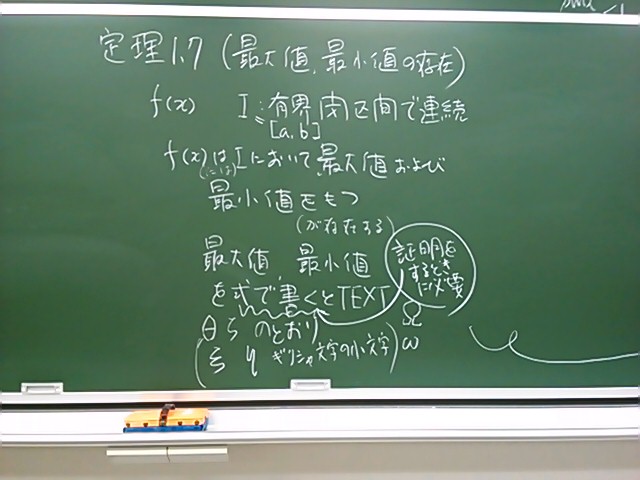 定理1.7 (最大値、最小値の存在)
f(x) I : 有界閉区間で連続
= [a, b]
f(x)は Iにおいて、最大値および
(には)
最小値をもつ
(が存在する)
最大値 最小値
を式で書くとTEXT
のとおり
証明を
するとき
に必要
Ω
(ξ η ギリシャ文字の小文字) ω